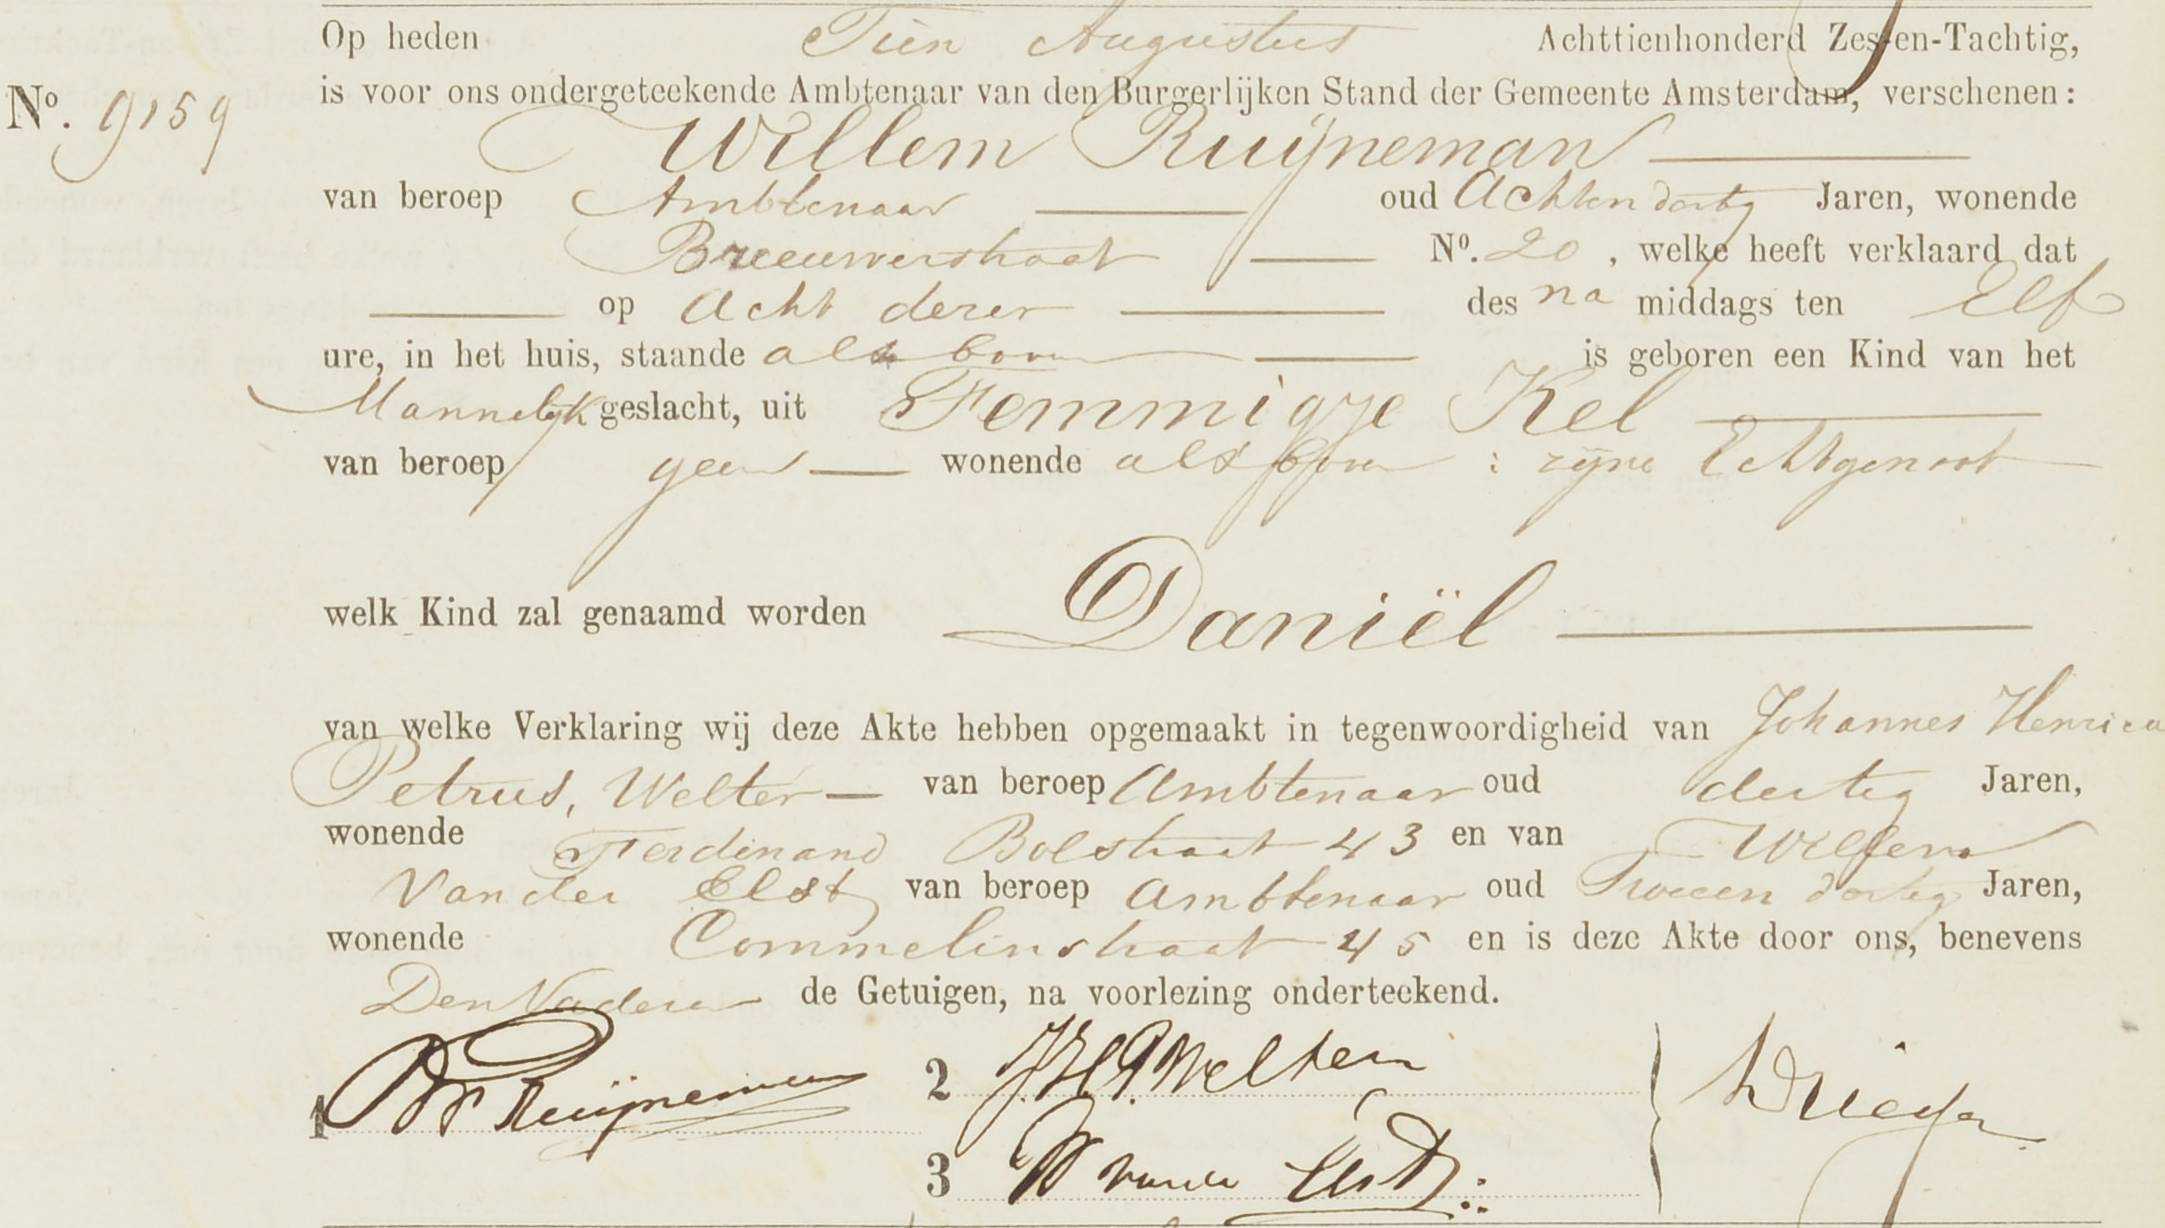 Op heden Tien Augustus Achttienhonderd Zes-en-Tachtig,
No. 9159
is voor ons ondergeteekende Ambtenaar van den Burgerlijken Stand der Gemeente Amsterdam, verschenen:
Willem Ruijneman
van beroep Ambtenaar oud Achtendertig Jaren, wonende
Breeuwerstraat No. 20, welke heeft verklaard dat
op Acht dezer des na middags ten Elf
ure, in het huis, staande als boven is geboren een Kind van het
Mannelijk geslacht, uit Femmigje Kel
van beroep geen wonende als boven : zijne Echtgenoot
welk Kind zal genaamd worden Daniël
van welke Verklaring wij deze Akte hebben opgemaakt in tegenwoordigheid van Johannes
Petrus, Welter van beroep Ambtenaar oud dertig Jaren,
wonende Ferdinand Bolstraat 43 en van Willem
Van der Elst van beroep Ambtenaar oud Tweeen dertig Jaren,
wonende Commelinstraat 45 en is deze Akte door ons, benevens
Den Vader de Getuigen, na voorlezing onderteekend.
1 W Ruijneman
2 J.H.P. Welter
3 W van der Elst